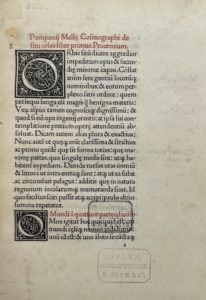 Pomponij Mellę Cosmographi de
situ orbis liber primus. Proœmium.
ORbis situ dicere aggredior
impeditum opus & facun
dię minime capax. Cõstat
enim fere gentiũ locorũq
nominibus: & eorum per
plexo satis ordine: quem
persequi longa est magis q̃ benigna materia:
Ver̃ aspici tamen cognosciq; dignissimũ: & quod
si nõ ope ingenii orantis: at ipsa sui contem
platione pretiũ operę attendentiũ absoluat.
Dicam autem alias plura & exactius:
Nunc aũt ut quęq; erunt clarissima & strictim
ac primo quidẽ quę sit forma totius: quę ma
ximę partes: quo singulę modo sint: utq; ha
bitent expediam. Deinde rursus oras omniũ
& litora ut intra extraq; sunt: atq; ut ea subit
ac circumluit pelagus: additis quę in natura
regionum incolarumq; memoranda sunt. Id
quo facilius sciri possit atq; accipi: paulo altius
summa repetetur.
Mundi i quattuor partes
OMne igitur hoc quicquid est
mundi cęliq; nomen indidimus
unũ id est: & uno ãbitu se cũctaq;
a
DUPLUM
BIBLIOTHECAE
R. MONAC.